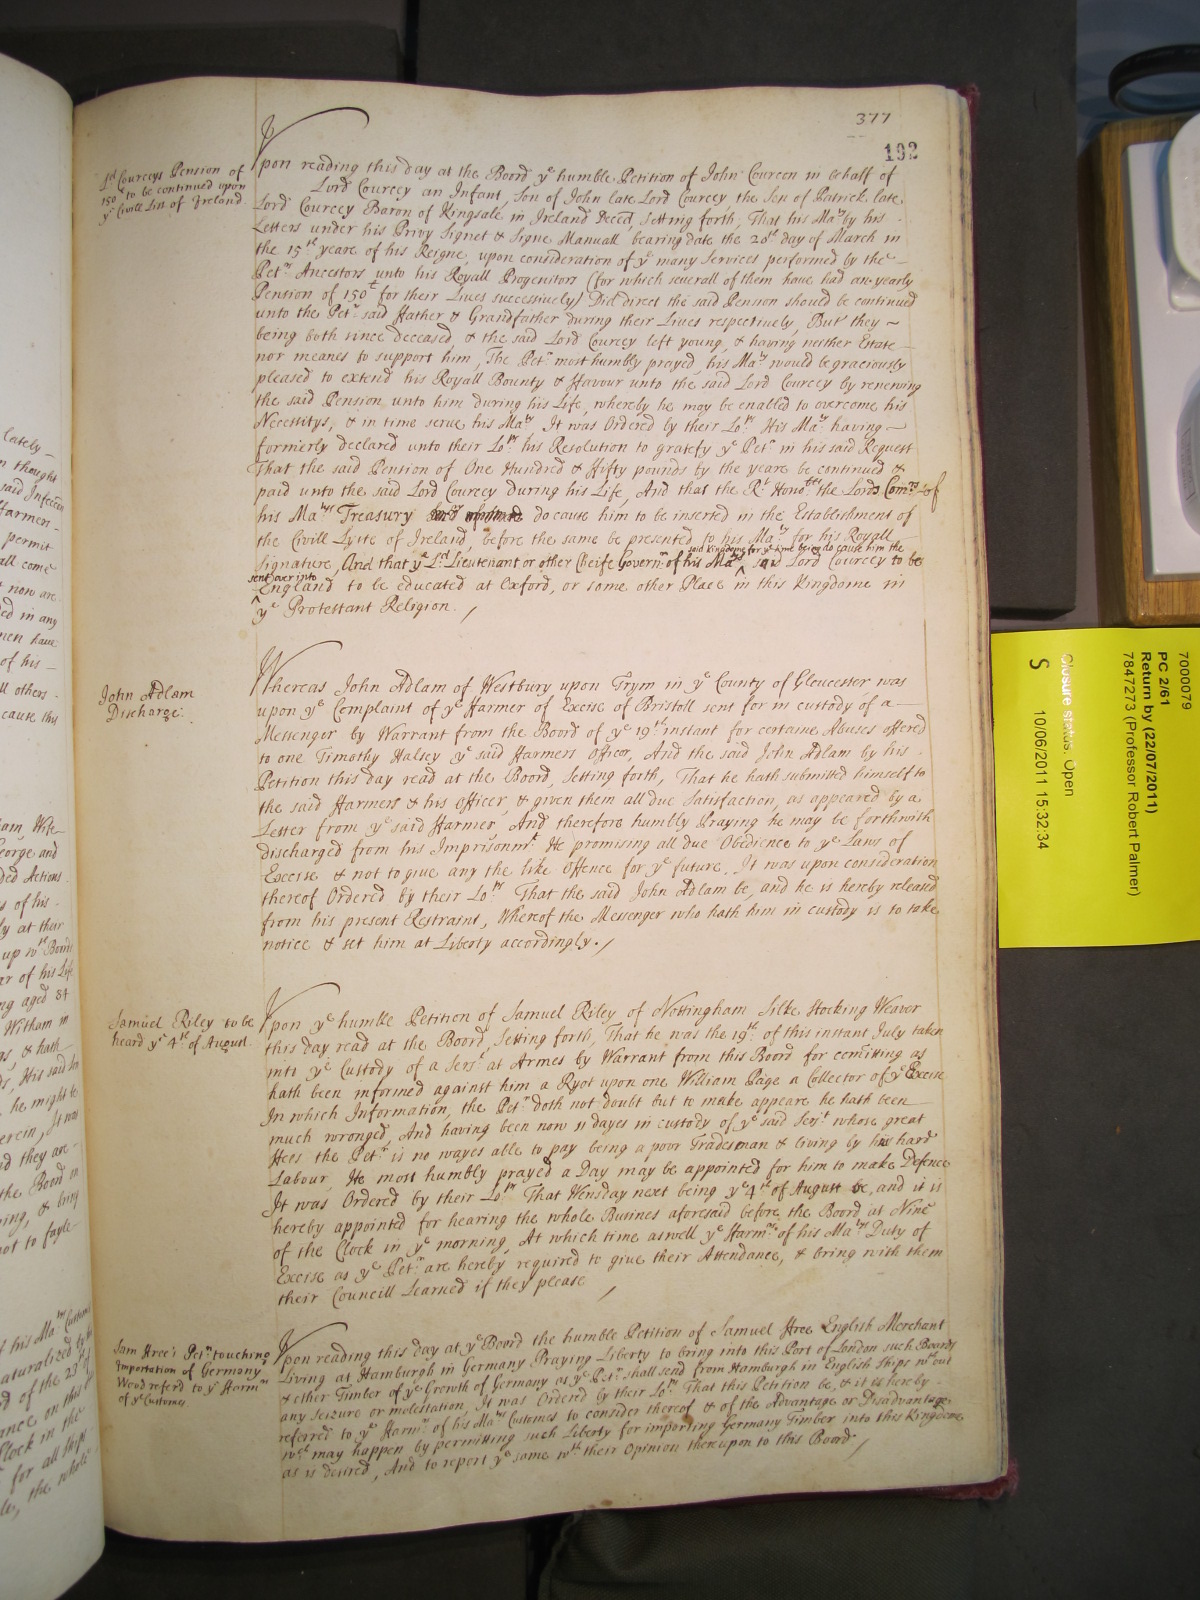 377
192
Ld Courceys Pension of
150£ to be continued upon
ye Civill List of Ireland.
Vpon reading this day at the Board ye humble Petition of John Courcen in behalf of
Lord Courcey an Infant, Son of John late Lord Courcey the Son of Patrick late
Lord Courcey Baron of Kingsale in Ireland Deced, Setting forth, That his Maty by his
Letters under his Privy Signet & Signe Manuall bearing date the 20th day of March in
the 15th yeare of his Reigne, upon consideration of ye many Services performed by the
Petrs Ancestors unto his Royall Progenitors (for which severall of them have had an yearly
Pension of 150£ for their Lives successively) Did direct the said Pension should be continued
unto the Petrs said Father & Grandfather during their Lives respectively, But they
being both since deceased, & the said Lord Courcey left young, & having neither Estate
nor means to support him, The Petr most humbly prayed, his Maty would be graciously
pleased to extend his Royall Bounty & Favour unto the said Lord Courcey by renewing
the said Pension unto him during his Life, whereby he may be enabled to overcome his
Necessitys, & in time serve his Maty. It was Ordered by their Lops His Maty having
formerly declared unto their Lops his Resolution to gratefy ye Petr in his said Request
That the said Pension of One Hundred & Fifty pounds by the yeare be continued &
paid unto the said Lord Courcey during his Life, And that the Rt Honoble the Lords Comrs of
his Mats Treasury do cause him to be inserted in the Establishment of
the Civill Lyste of Ireland, before the same be presented to his Maty for his Royall
said Kingdome for ye time being do cause him the
Signature, And that ye Ld Lieutenant or other Cheife Governr of his Mats said Lord Courcey to be
sent over into
England to be educated at Oxford, or some other Place in this Kingdome in
ye Protestant Religion.
John Adlam
Discharge.
Whereas John Adlam of Westbury upon Trym in ye County of Gloucester was
upon ye Complaint of ye Farmer of Excise of Bristoll sent for in custody of a
Messenger by Warrant from the Board of ye 19th instant for certaine Abuses offered
to one Timothy Halsey ye said Farmers Officer, And the said John Adlam by his
Petition this day read at the Board, Setting forth, That he hath submitted himself to
the said Farmers & his Officer, & given them all due Satisfaction, as appeared by a
Letter from ye said Farmer, And therefore humbly Praying he may be forthwith
discharged from his Imprisonmt. He promising all due Obedience to ye Laws of
Excise & not to give any the like Offence for ye future. It was upon consideration
thereof Ordered by their Lops That the said John Adlam be, and he is hereby released
from his present Restraint, Whereof the Messenger who hath him in custody is to take
notice & set him at Liberty accordingly.
Samuel Riley to be
heard ye 4th of August.
Vpon ye humble Petition of Samuel Riley of Nottingham Silke Stocking Weaver
this day read at the Board, Setting forth, That he was the 19th of this instant July taken
into ye Custody of a Serjt at Armes by Warrant from this Board for comitting as
hath been informed against him a Ryot upon one William Page a Collector of ye Excise
In which Information, the Petr doth not doubt but to make appeare he hath been
much wronged, And having been now 11 dayes in custody of ye said Serjt whose great
Fees the Petr is no wayes able to pay being a poor Tradesman & living by his hard
Labour, He most humbly prayed a Day may be appointed for him to make Defence
It was Ordered by their Lops That Wensday next being ye 4th of August be, and it is
hereby appointed for hearing the whole Busines aforesaid before the Board at Nine
of the Clock in ye morning, At which time aswell ye Farmrs of his Mats Duty of
Excise as ye Petr are hereby required to give their Attendance, & bring with them
their Councill Learned if they please
Sam Free's Petn touching
Importation of Germany
Wood referd to ye Farmrs
of ye Customes
Vpon reading this day at ye Board the humble Petition of Samuel Free English Merchant
Living at Hamburgh in Germany Praying Liberty to bring into this Port of London such Boards
& other Timber of ye Growth of Germany as ye Petr shall send from Hamburgh in English Ships wthout
any Seizure or molestation, It was Ordered by their Lops That this Petition be, & it is hereby
referred to ye Farmrs of his Mats Customes to consider thereof & of the Advantage or Disadvantage
wch may happen by permitting such Liberty for importing Germany Timber into this Kingdome
as is desired, And to report ye same wth their Opinion thereupon to this Board
7000079
PC 2/61
Return by (22/07/2011)
7847273 (Professor Robert Palmer)
Closure status: Open
S
10/06/2011 15:32:34